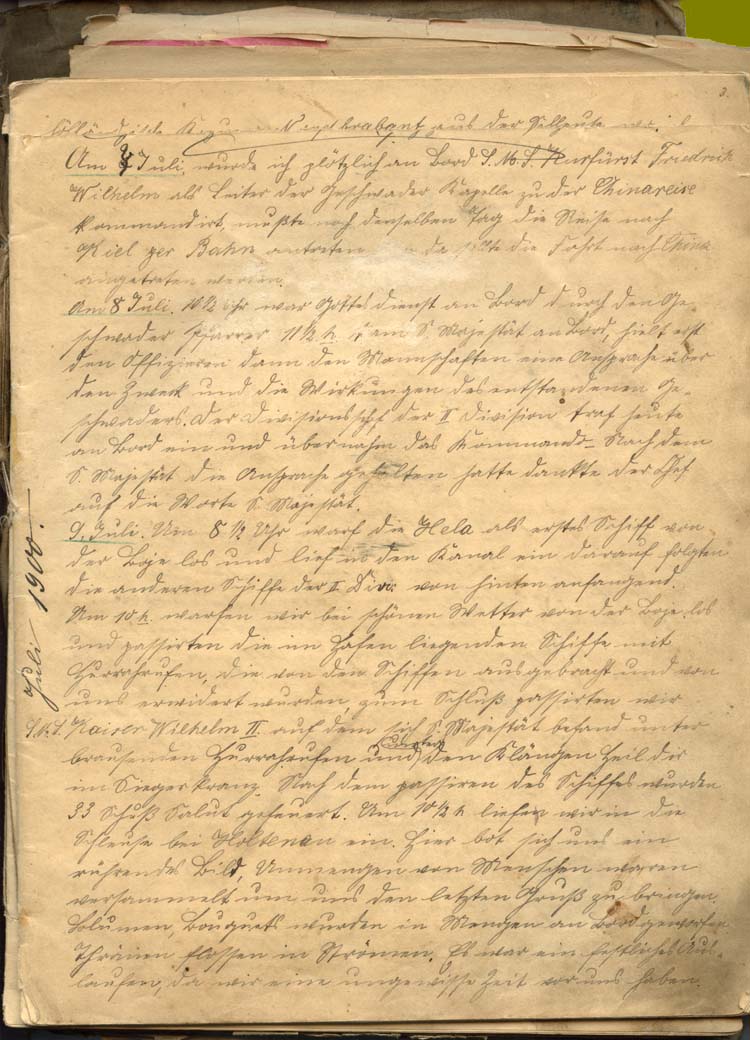 3.
holländische aus der
Am 7 Juli. wurde ich plötzlich an Bord S. M. S. Kurfürst Friedrich
Wilhelm als Leiter der Geschwader Kapelle zu der Chinareise
kommandirt, mußte noch denselben Tag die Reise nach
Kiel per Bahn antreten da sollte die Fahrt nach China
angetreten werden.
Am 8 Juli. 10½ Uhr war Gottesdienst an Bord durch den Ge-
schwader Pfarrer 11½ h. kam S. Majestät an Bord, hielt erst
den Offizieren dann den Mannschaften eine Ansprache über
den Zweck und die Wirkungen des entstandenen Ge-
schwaders. Der Divisionschef der II Division traf heute
an Bord ein und übernahm das Kommando. Nach dem
S. Majestät die Ansprache gehalten hatte dankte der Chef
auf die Worte S. Majestät.
9. Juli. Um 8 ½ Uhr warf die Hela als erstes Schiff von
der Boje los und lief in den Kanal ein darauf folgten
die anderen Schiffe der II Div: von hinten anfangend.
Um 10 h. warfen wir bei schönen Wetter von der Boje los
und passirten die im Hafen liegenden Schiffe mit
Hurrahrufen, die von den Schiffen ausgebracht und von
uns erwidert wurden, zum Schluß passirten wir
S. M. S. Kaiser Wilhelm II. auf dem sich S. Majestät befand unter
brausenden Hurrahrufen und den Klängen Heil dir
im Siegerkranz. Nach dem passiren des Schiffes wurden
33 Schuß Salut gefeuert. Um 10½ h liefen wir in die
Schleuse bei Holtenau ein. Hier bot sich uns ein
rührendes Bild, Unmengen von Menschen waren
versammelt um uns den letzten Gruß zu bringen.
Blumen, Bouquets wurden in Mengen an Bord geworfen
Thränen flossen in Strömen. Es war ein festliches Aus-
laufen, da wir eine ungewisse Zeit vor uns haben.
Juli 1900.